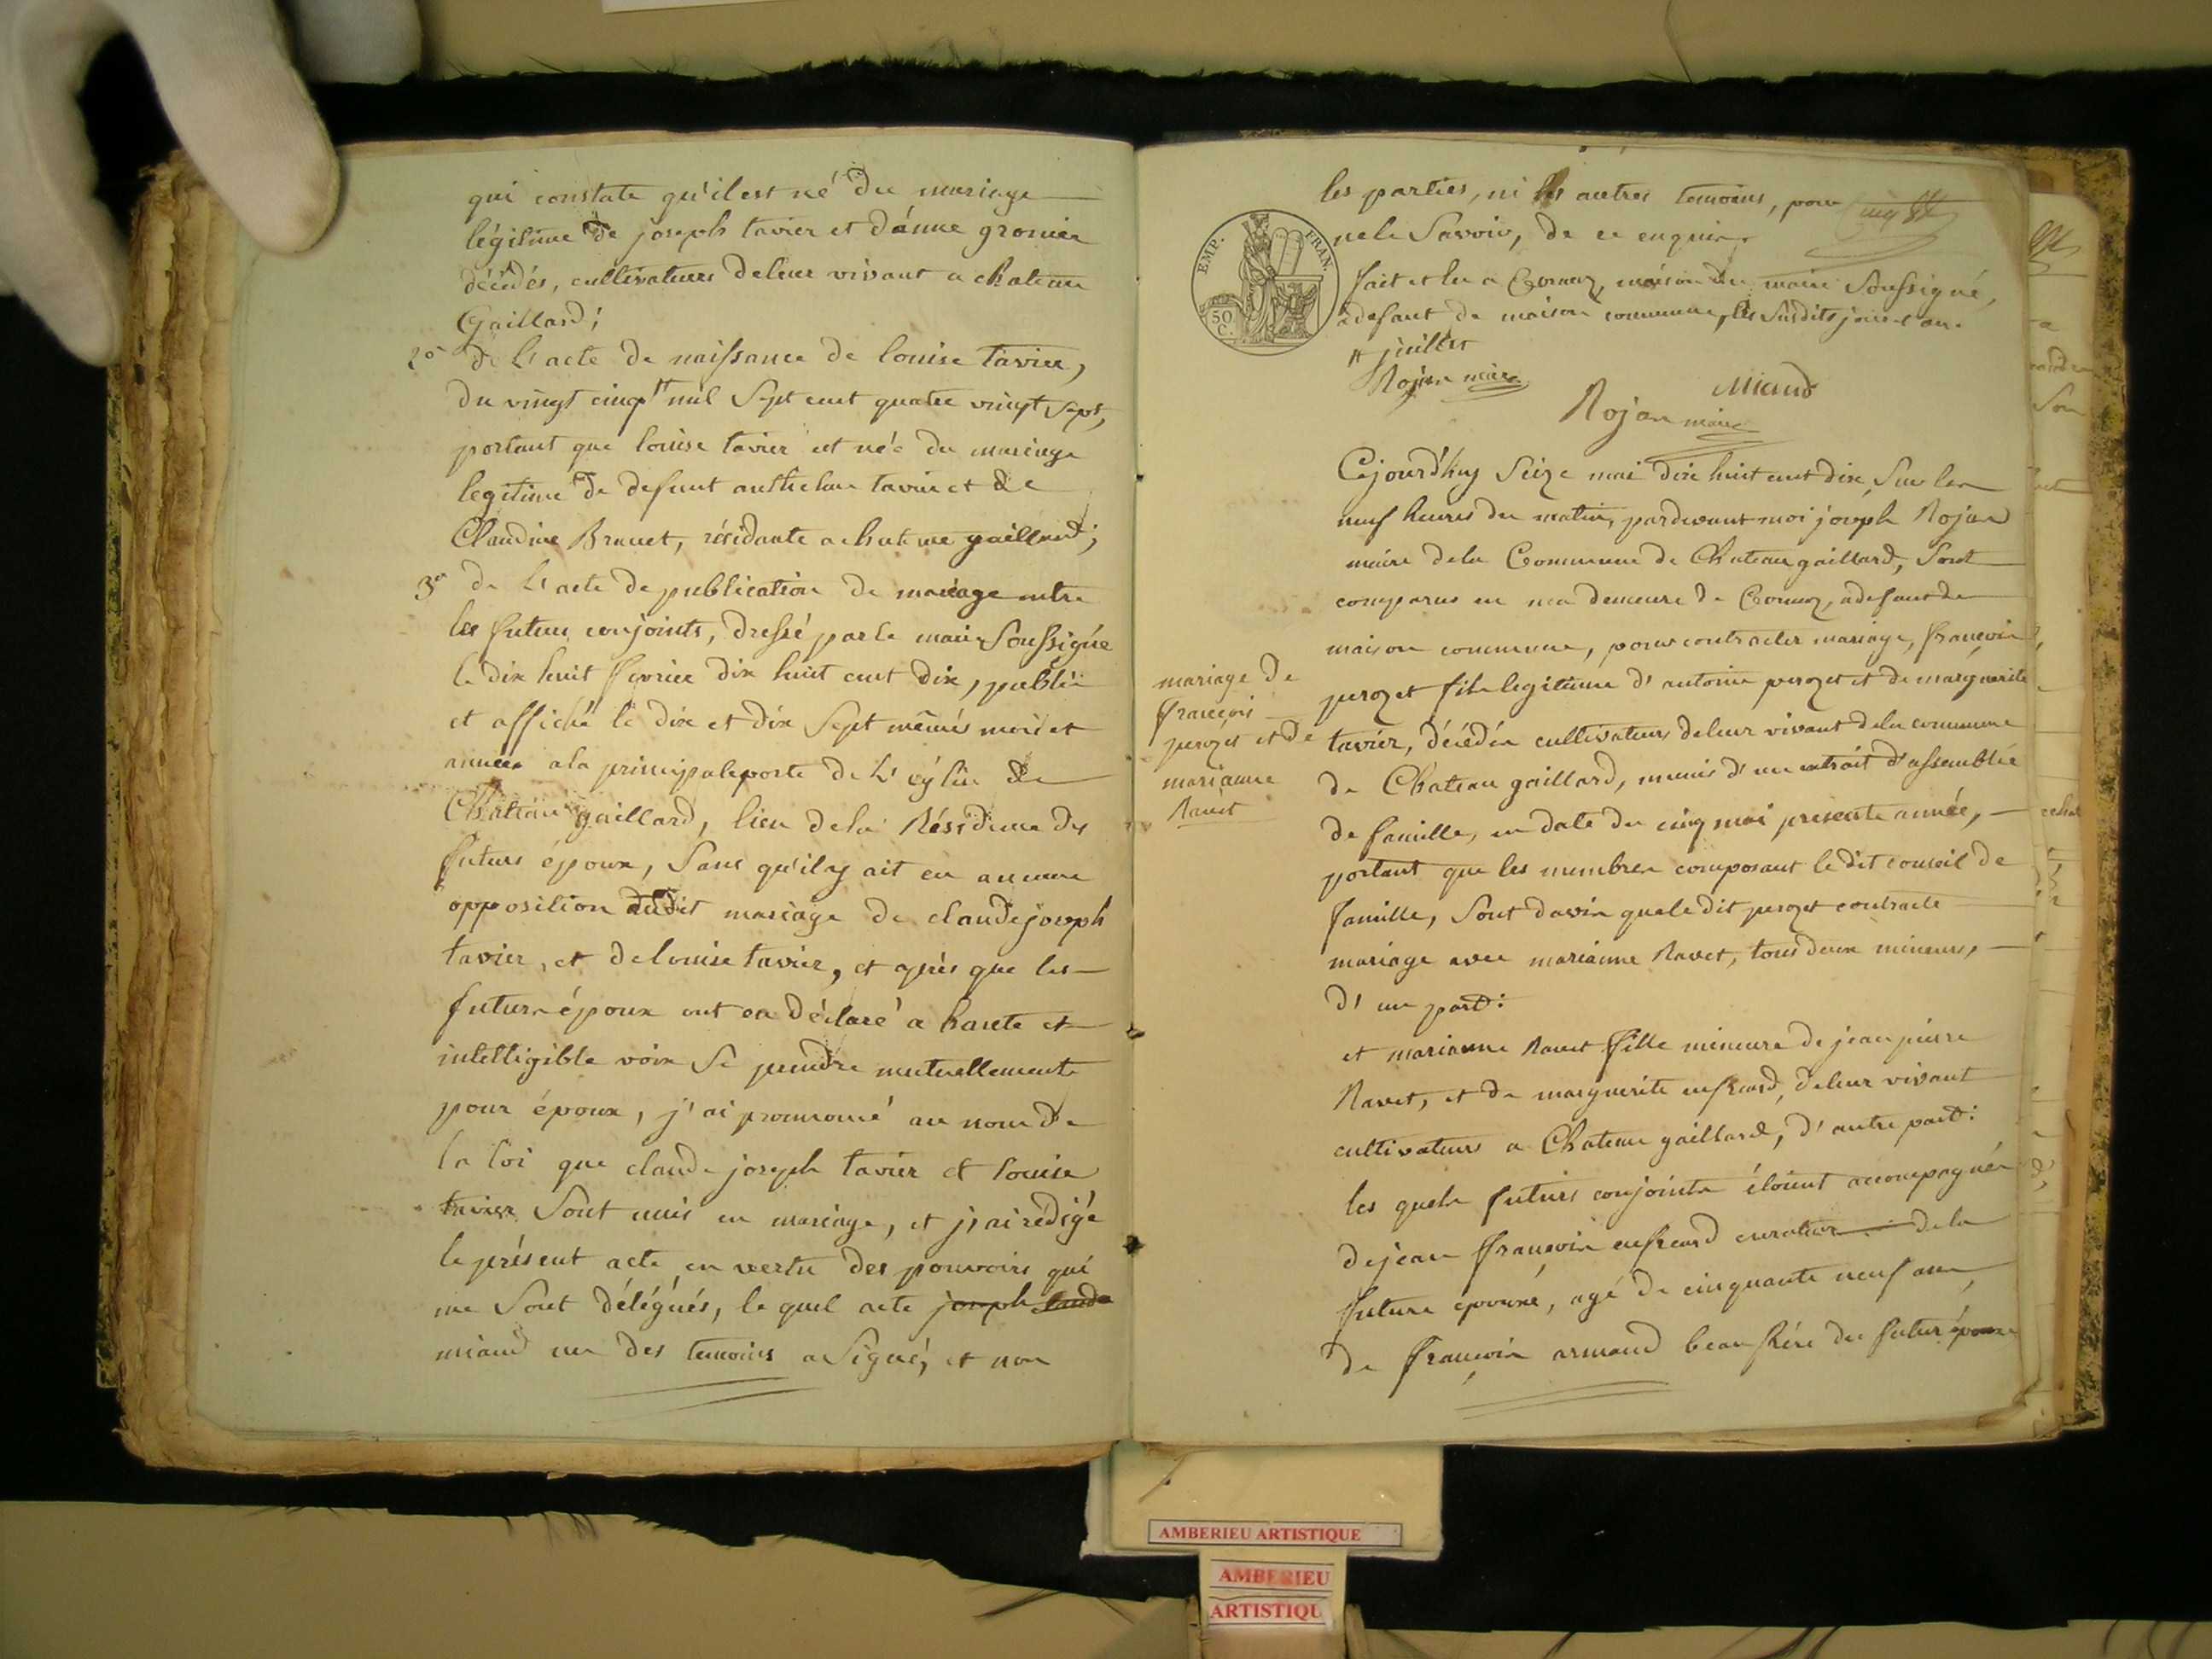 qui constate qu'il est né du mariage
légitime de joseph tavier et d'anne gronier
décédés, cultivateurs de leur vivant a chateau
Gaillard;
2º de L'acte de naissance de louise tavier,
du vingt cinq # mil Sept cent quatre vingt Sept,
portant que louise tavier est née du mariage
legitime de defunt anthelme tavier et de
Claudine Brunet, résidante a chateau gaillard;
3º de L'acte de publication de mariage entre
les futurs conjoints, dressé par le maire Soussigné
le dix huit fevrier dix huit cent dix, publié
et affiché le dix et dix Sept mêmes mois et
année a la principale porte de L'église de
Chateau gaillard, lieu de la Résidence des
futurs époux, Sans qu'il y ait eu aucune
opposition audit mariage de claude joseph
tavier, et de louise tavier, et après que les
futurs époux ont eu déclaré a haute et
intelligible voix Se prendre mutuellement
pour époux, j'ai prononcé au nom de
la loi que claude joseph tavier et louise
tavier Sont unis en mariage, et j'ai rédigé
le présent acte en vertu des pouvoirs qui
me Sont délégués, le quel acte joseph claude
miand un des temoins a Signé, et non
les parties, ni les autres temoins, pour
ne le Savoir, de ce enquis.
EMP. FRAN.
50 C.
fait et lu a Cormoz, maison du maire Soussigné,
a defaut de maison commune, les Susdits jour et an.
# juillet
Rojan maire
Miand
Rojan maire
Cejourd'huy Seize mai dix huit cent dix, Sur les
neuf heures du matin, pardevant moi joseph Rojan
maire de la Commune de Chateau gaillard, Sont
comparus en ma demeure de Cormoz, a defaut de
maison commune, pour contracter mariage, françois
mariage de
françois
perozet et de
marianne
Ravet
perozet fils legitime d'antoine perozet et de marguerite
tavier, décédés cultivateurs de leur vivant de la commune
de Chateau gaillard, munis d'un extrait d'assemblée
de famille, en date du cinq mai presente année,
portant que les membres composant le dit conseil de
famille, Sont d'avis que le dit perozet contracte
mariage avec marianne Ravet, tous deux mineurs,
d'un part:
et marianne Ravet fille mineure de jean pierre
Ravet, et de marguerite , de leur vivant
cultivateurs a Chateau gaillard, d'autre part:
les quels futurs conjoints étoient accompagnés
de jean françois curateur de la
future épouse, agé de cinquante neuf ans,
de françois armand beau frére du futur époux
AMBERIEU ARTISTIQUE
AMBERIEU
ARTISTIQU